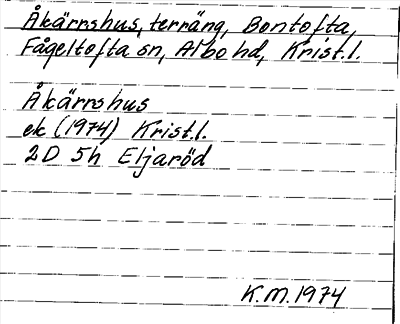 Åkärrshus, terräng, Bontofta,
Fågeltofta sn, Albo hd, Krist.l.
Åkärrshus
ek (1974) Krist.l.
2D 5h Eljaröd
K.M. 1974